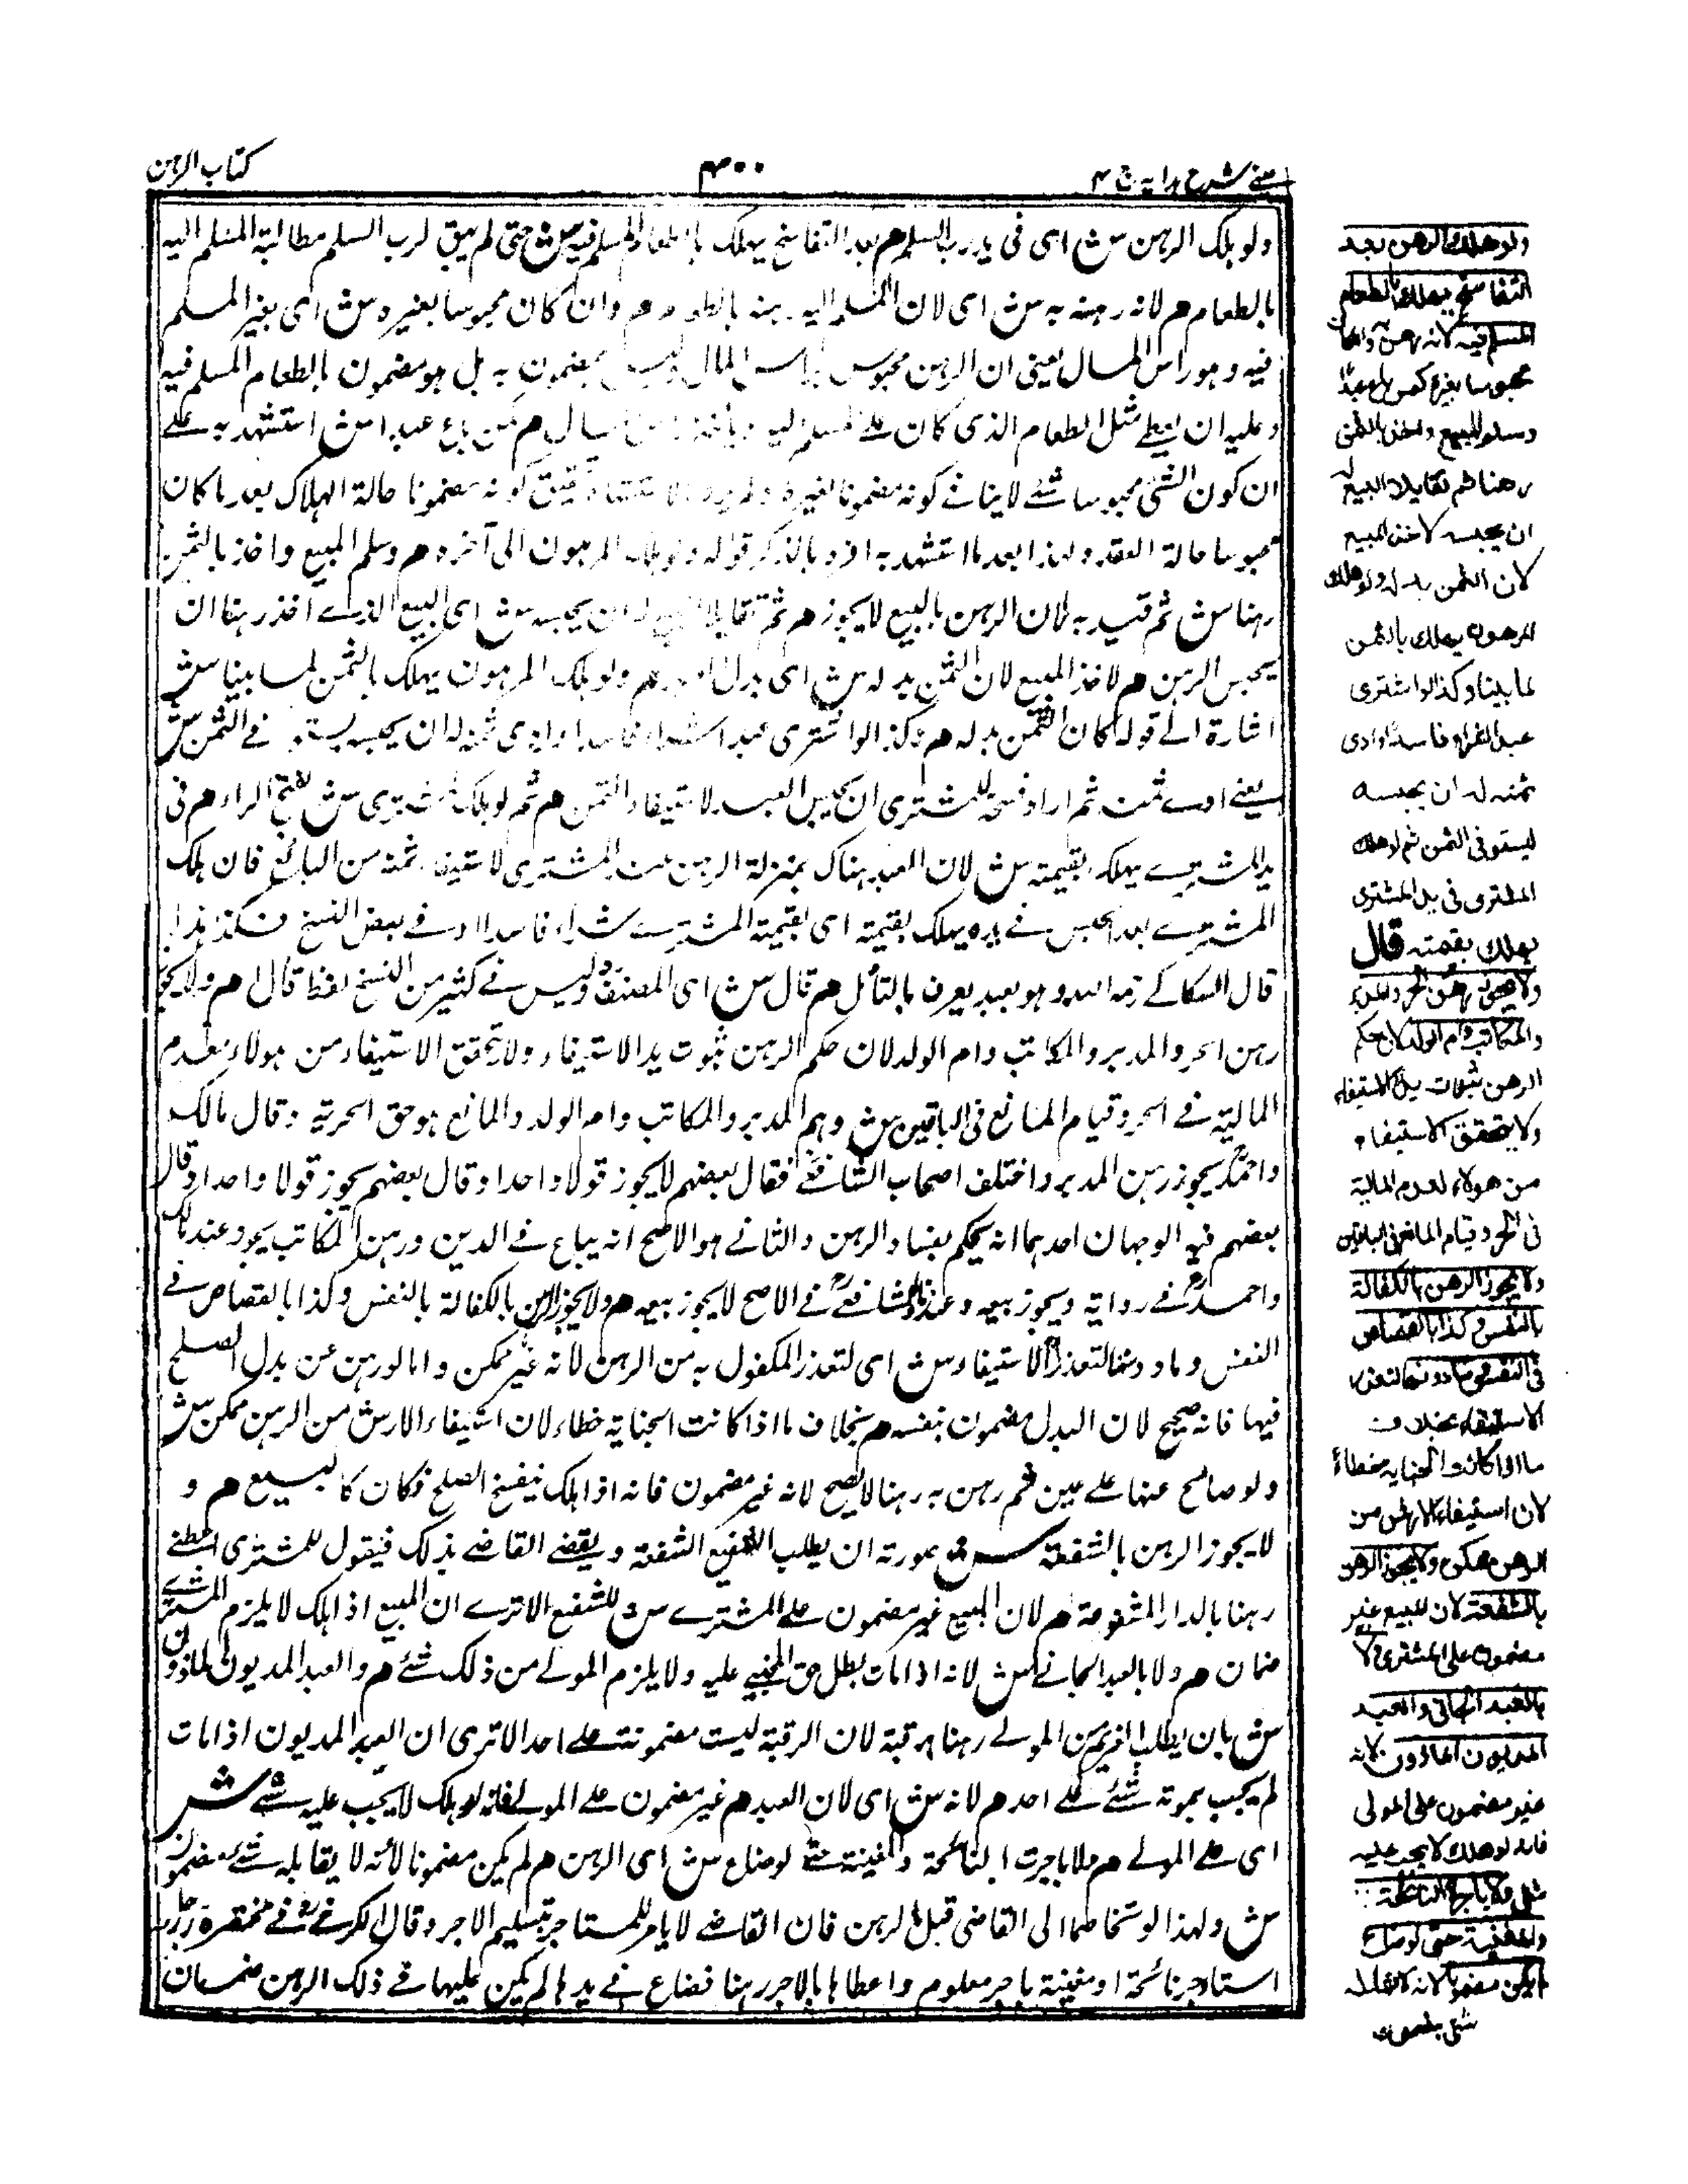 عینے شرح ہدایہ ج ۴
۴۰۰
کتاب الرہن
ولو ہلک الرہن ش ای فی ید رب السلم م بعد التفاسخ یہلک بالطعام المسلم فیہ ش حتی لم یبق لرب السلم مطالبة المسلم الیہ
بالطعام م لانہ رہنہ بہ ش ای لان المسلم الیہ رہنہ بالطعام م وان کان محبوسا بغیرہ ش ای بغیر المسلم
فیہ وہو راس المال یعنی ان الرہن محبوس براس المال ولیس بمضمون بہ بل ہو مضمون بالطعام المسلم فیہ
وعلیہ ان یعطے مثل الطعام الذی کان علے المسلم الیہ ویاخذ راس المال م کمن باع عبدا ش استشہد بہ علے
ان کون الشئ محبوسا بشئے لا ینافے کونہ مضمونا بغیرہ کونہ مضمونا حالة الہلاک بعد ما کان
محبوسا حالة العقد ولہذا بعد ما استشہد بہ افرد بالذکر قولہ ولو ہلک المرہون الی آخرہ م وسلم المبیع واخذ بالثمن
رہنا ش ثم قید بہ لان الرہن بالمبیع لا یجوز م ثم تقایلا البیع لہ ان یحبسہ ش ای البیع الذی اخذ رہنا ان
یحبس الرہن م لاخذ المبیع لان الثمن بدلہ ش ای بدل المبیع م ولو ہلک المرہون یہلک بالثمن لما بینا ش
اشارة الے قولہ لان الثمن بدلہ م وکذا لو اشتری عبدا شراء فاسدا وادی ثمنہ لہ ان یحبسہ لیستوفے الثمن ش
یعنے ادے ثمنہ ثم اراد فسخہ للمشتری ان یحبس العبد لاستیفاء الثمن م ثم لو ہلک المشتری ش بفتح الراء م فی
ید المشترے یہلک بقیمتہ ش لان العبد ہناک بمنزلة الرہن عند المشتری لاستیفاء ثمنہ من البائع فان ہلک
المشترے بعد الحبس فے یدہ یہلک بقیمتہ ای بقیمة المشترے شراء فاسدا وفے بعض النسخ فکذ ہذا
قال السکاکے رحمہ اللہ وہو بعید یعرف بالتامل م قال ش ای المصنف ولیس فے کثیر من النسخ لفظ قال م ولا یجوز
رہن الحر والمدبر والمکاتب وام الولد لان حکم الرہن ثبوت ید الاستیفاء ولا یتحقق الاستیفاء من ہولاء لعدم
المالیة فے الحر وقیام المانع فی الباقین ش وہم المدبر والمکاتب وام الولد والمانع ہو حق الحریة وقال مالک
واحمد یجوز رہن المدبر واختلف اصحاب الشافعے فقال بعضہم لا یجوز قولا واحدا وقال بعضہم یجوز قولا واحدا وقال
بعضہم فیہ الوجہان احدہما انہ یحکم بفساد الرہن والثانے ہو الاصح انہ یباع فے الدین ورہن المکاتب یجوز عند مالک
واحمد فے روایة ویجوز بیعہ وعندنا والشافعے فے الاصح لا یجوز بیعہ م ولا یجوز الرہن بالکفالة بالنفس وکذا بالقصاص فے
النفس وما دونہا لتعذر الاستیفاء ش ای لتعذر المکفول بہ من الرہن لانہ غیر ممکن واما لو رہن عن بدل الصلح
فیہا فانہ صحیح لان البدل مضمون بنفسہ م بخلاف ما اذا کانت الجنایة خطاء لان استیفاء الارش من الرہن ممکن ش
ولو صالح عنہا علے عین ثم رہن بہ رہنا لا یصح لانہ غیر مضمون فانہ اذا ہلک ینفسخ الصلح فکان کالمبیع م و
لا یجوز الرہن بالشفعة ش صورتہ ان یطلب الشفیع الشفعة ویقضے القاضے بذلک فیقول للمشتری اعطنے
رہنا بالدار المشفوعة م لان المبیع غیر مضمون علے المشترے ش للشفیع الا ترے ان المبیع اذا ہلک لا یلزم المشترے
ضمان م ولا بالعبد الجانے ش لانہ اذا مات بطل حق المجنے علیہ ولا یلزم المولے من ذلک شئے م والعبد المدیون الماذون
ش بان یطلب الغریم من المولے رہنا برقبتہ لان الرقبة لیست مضمونة علے احد الا تری ان العبد المدیون اذا مات
لم یجب بموتہ شئے علے احد م لانہ ش ای لان العبد م غیر مضمون علے المولے فانہ لو ہلک لا یجب علیہ شئے ش
ای علے المولے م ولا باجرة النائحة والمغنیة حتے لو ضاع ش ای الرہن م لم یکن مضمونا لانہ لا یقابلہ شئے مضمون
ش ولہذا لو تخاصما الی القاضی قبل الرہن فان القاضے لا یامر للمستاجر بتسلیم الاجر وقال الکرخے فے مختصرہ رجل
استاجر نائحة او مغنیة باجر معلوم واعطاہا بالاجر رہنا فضاع فے یدہا لم یکن علیہا فے ذلک الرہن ضمان
ولو هلك الرهن بعد
التفاسخ يهلك بالطعام
المسلم فيه لانه رهن به وانكان
محبوسا بغيره كمن باع عبدا
وسلم المبيع واخذ بالثمن
رهنا ثم تقايلا البيع له
ان يحبسه لاخذ المبيع
لان الثمن بدله ولو هلك
المرهون يهلك بالثمن
لما بينا وكذا لو اشترى
عبدا شراء فاسدا وادى
ثمنه له ان يحبسه
ليستوفى الثمن ثم لو هلك
المشترى فى يد المشترى
يهلك بقيمته قال
ولا يجوز رهن الحر والمدبر
والمكاتب وام الولد لان حكم
الرهن ثبوت يد الاستيفاء
ولا يتحقق الاستيفاء
من هولاء لعدم المالية
فى الحر وقيام المانع فى الباقين
ولا يجوز الرهن بالكفالة
بالنفس وكذا بالقصاص
فى النفس وما دونها لتعذر
الاستيفاء بخلاف
ما اذا كانت الجناية خطاء
لان استيفاء الارش من
الرهن ممكن ولا يجوز الرهن
بالشفعة لان المبيع غير
مضمون على المشترى ولا
بالعبد الجانى والعبد
المديون الماذون لانه
غير مضمون على المولى
فانه لو هلك لا يجب عليه
شئ ولا باجرة النائحة
والمغنية حتى لو ضاع
لم يكن مضمونا لانه لا يقابله
شئ مضمون